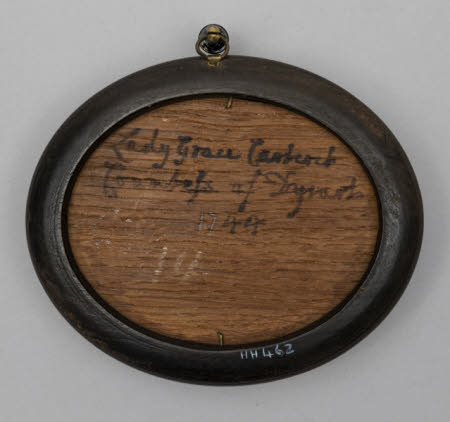 Lady Grace Carteret
Countess of Dysart
1744
14
HH462